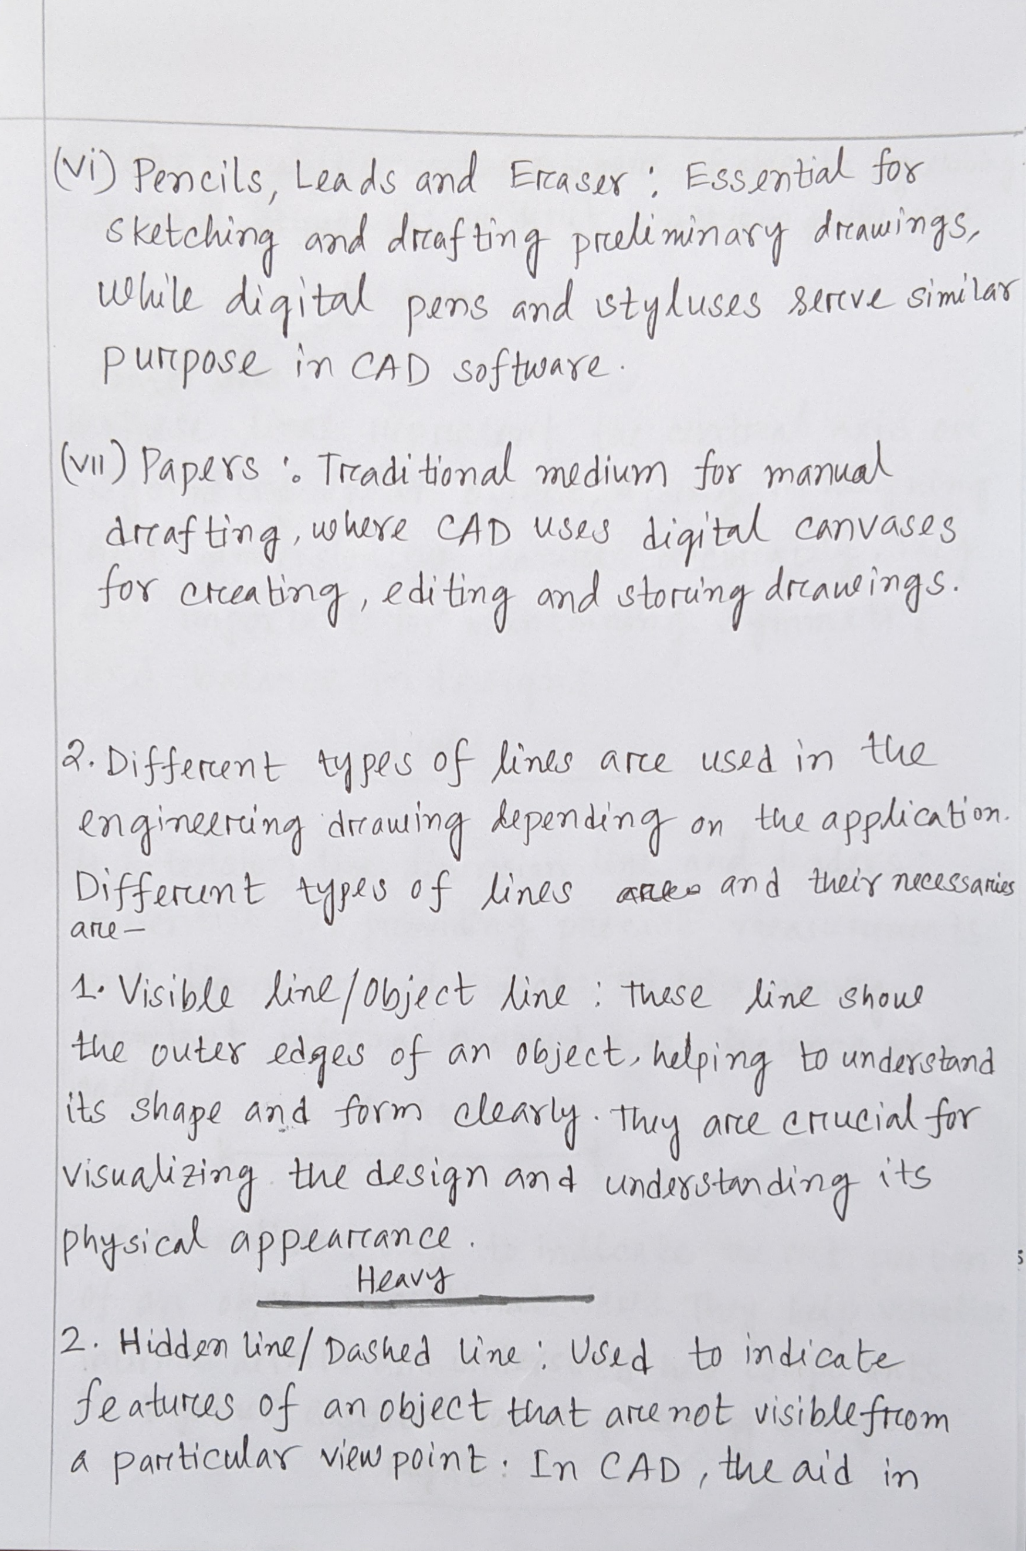 (vi) Pencils, Leads and Eraser : Essential for
sketching and drafting preliminary drawings,
while digital pens and styluses serve similar
purpose in CAD software.
(vii) Papers : Traditional medium for manual
drafting, where CAD uses digital canvases
for creating, editing and storing drawings.
2. Different types of lines are used in the
engineering drawing depending on the application.
Different types of lines and their necessaries
are —
1. Visible line/Object line : these line show
the outer edges of an object, helping to understand
its shape and form clearly. They are crucial for
visualizing the design and understanding its
physical appearance.
Heavy
2. Hidden line/ Dashed line : Used to indicate
features of an object that are not visible from
a particular view point. In CAD, the aid in